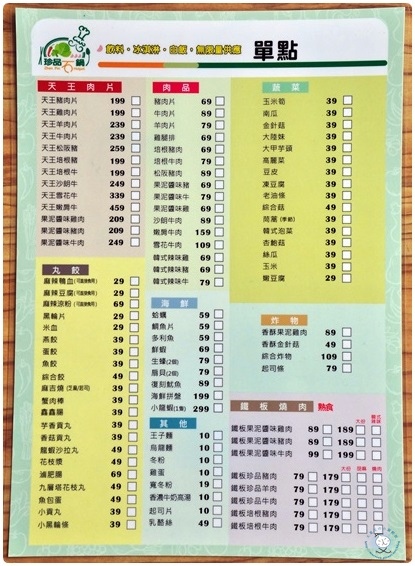 珍品石鍋
飲料、冰淇淋、白飯，無限量供應
單點
天王肉片
天王豬肉片 199
天王雞肉片 199
天王羊肉片 239
天王牛肉片 239
天王松阪豬 259
天王培根豬 199
天王培根牛 199
天王沙朗牛 249
天王雪花牛 339
天王嫩肩牛 459
果泥醬味雞肉 209
果泥醬味豬肉 209
果泥醬味牛肉 249
肉品
豬肉片 69
牛肉片 89
羊肉片 79
雞腿排 69
培根豬肉 69
培根牛肉 79
松阪豬肉 89
果泥醬味豬 69
果泥醬味牛 79
果泥醬味雞 69
沙朗牛肉 89
嫩肩牛肉 159
雪花牛肉 109
韓式辣味雞 69
韓式辣味豬 69
韓式辣味牛 79
蔬菜
玉米筍 39
南瓜 39
金針菇 39
大陸妹 39
大甲芋頭 39
高麗菜 39
豆皮 39
凍豆腐 39
老油條 39
綜合菇 49
茼蒿(季節) 39
韓式泡菜 39
杏鮑菇 39
絲瓜 39
玉米 39
嫩豆腐 29
丸餃
麻辣鴨血 29
麻辣豆腐 29
麻辣凍粉 69
黑輪片 29
米血 29
燕餃 39
蛋餃 39
魚餃 39
綜合餃 49
麻吉燒 49
蟹肉棒 39
鑫鑫腸 39
芋香貢丸 39
香菇貢丸 39
龍蝦沙拉丸 49
花枝漿 49
滷肥腸 69
九層塔花枝丸 49
魚包蛋 49
小貢丸 39
小黑輪條 39
海鮮
蛤蠣 59
鯛魚片 59
多利魚 59
鮮蝦 69
生蠔(2個) 79
扇貝(2個) 79
復刻魷魚 89
海鮮拼盤 199
小龍蝦(1隻) 299
其他
王子麵 10
烏龍麵 10
冬粉 10
雞蛋 10
寬冬粉 19
香濃牛奶高湯 10
起司片 10
乳酪絲 49
炸物
香酥果泥雞肉 89
香酥金針菇 49
綜合炸物 109
起司條 79
鐵板燒肉 熱食
大份
鐵板果泥醬味雞肉 89 189
鐵板果泥醬味豬肉 89 189
鐵板果泥醬味牛肉 99 199
大份
鐵板珍品豬肉 79 179
鐵板珍品羊肉 79 179
鐵板珍品牛肉 79 179
鐵板培根豬肉 79 179
鐵板培根牛肉 79 179